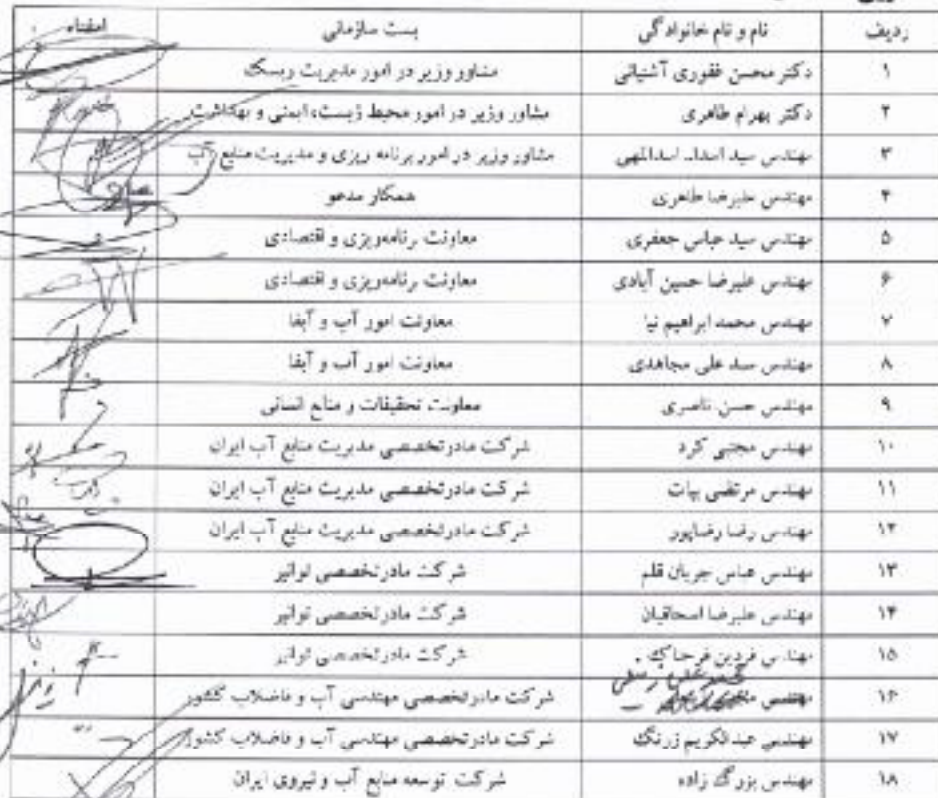 ردیف نام و نام خانوادگی پست سازمانی امضاء
۱ دکتر محسن غفوری آشتیانی مشاور وزیر در امور مدیریت ریسک
۲ دکتر بهرام طاهری مشاور وزیر در امور محیط زیست، ایمنی و بهداشت
۳ مهندس سید اسداله اسدالهی مشاور وزیر در امور برنامه ریزی و مدیریت منابع آب
۴ مهندس علیرضا طاهری همکار مدعو
۵ مهندس سید عباس جعفری معاونت برنامه‌ریزی و اقتصادی
۶ مهندس علیرضا حسین آبادی معاونت برنامه‌ریزی و اقتصادی
۷ مهندس محمد ابراهیم نیا معاونت امور آب و آبفا
۸ مهندس سید علی مجاهدی معاونت امور آب و آبفا
۹ مهندس حسن ناصری معاونت تحقیقات و منابع انسانی
۱۰ مهندس مجتبی کرد شرکت مادرتخصصی مدیریت منابع آب ایران
۱۱ مهندس مرتضی بیات شرکت مادرتخصصی مدیریت منابع آب ایران
۱۲ مهندس رضا رضاپور شرکت مادرتخصصی مدیریت منابع آب ایران
۱۳ مهندس عباس جریان قلم شرکت مادرتخصصی توانیر
۱۴ مهندس علیرضا اسحاقیان شرکت مادرتخصصی توانیر
۱۵ مهندس فردین فرحناک شرکت مادرتخصصی توانیر
۱۶ مهندس شرکت مادرتخصصی مهندسی آب و فاضلاب کشور
۱۷ مهندس عبدالکریم زرنگ شرکت مادرتخصصی مهندسی آب و فاضلاب کشور
۱۸ مهندس بزرگ زاده شرکت توسعه منابع آب و نیروی ایران